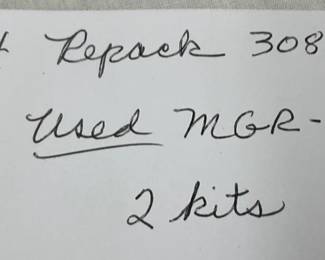 Repack 308
Used MGR-
2 kits